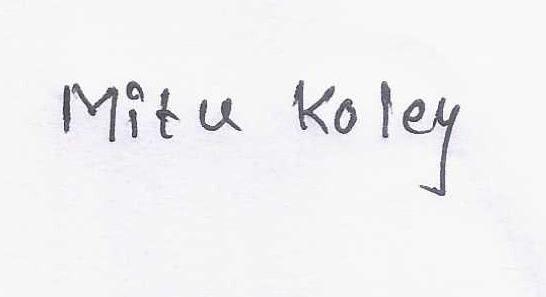 Mitu Koley